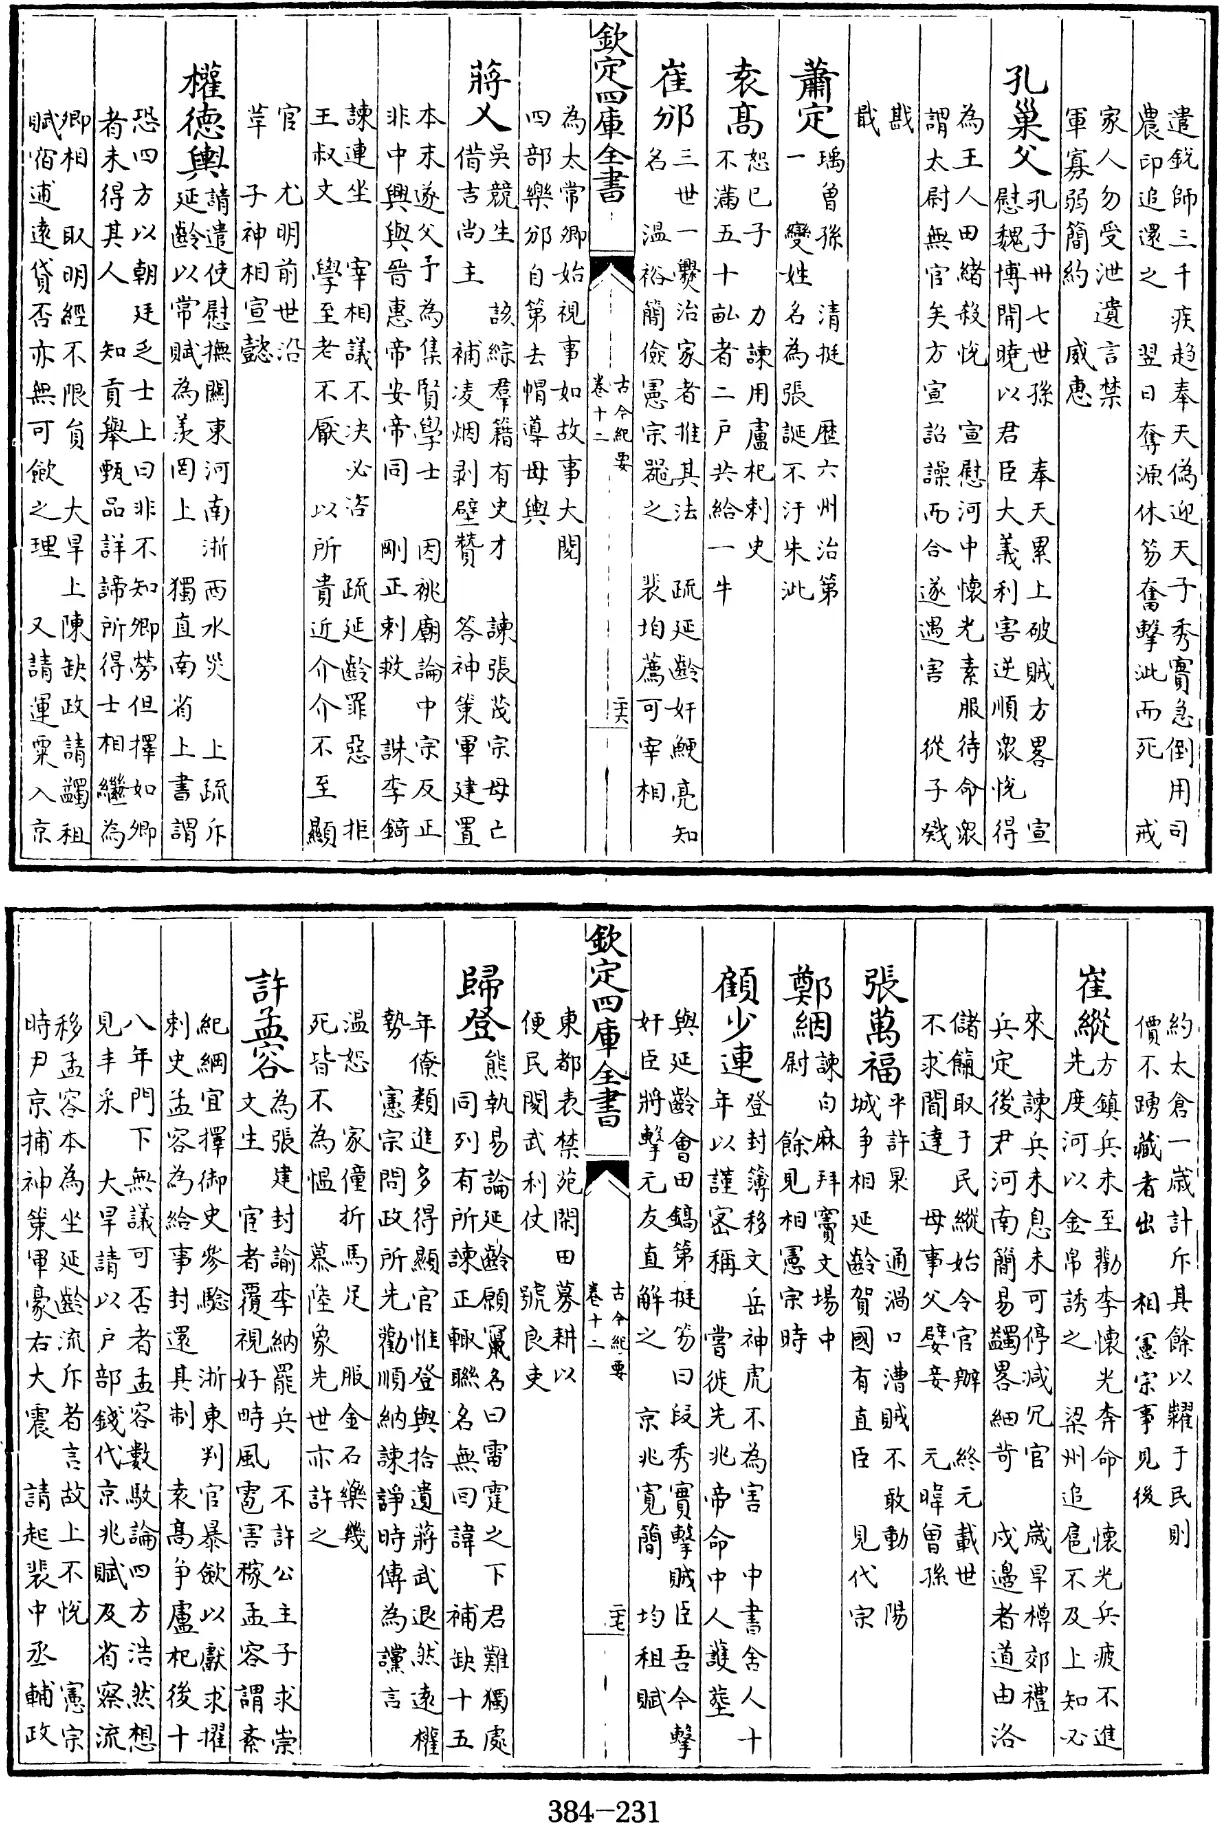 遣銳師三千疾趨奉天偽迎天子秀實急倒用司
農印追還之　翌日奪源休笏奮擊泚而死　戒
家人勿受泄遺言禁
軍寡弱簡約　威惠
孔巢父
孔子卅七世孫　奉天累上破賊方畧　宣
慰魏博開曉以君臣大義利害逆順衆悦得
為王人田緒殺悦　宣慰河中懷光素服待命衆
謂太尉無官矣方宣詔譟而合遂遇害　從子戣
戡
戢
蕭定
瑀曾孫　清挺　歴六州治第
一　變姓名為張誕不汙朱泚
袁高
恕已子　力諫用盧杞刺史
不滿五十畝者二戶共給一牛
崔邠
三世一爨治家者推其法　疏延齡奸鯁亮知
名　温裕簡儉憲宗器之　裴垍薦可宰相
欽定四庫全書
古今紀要
卷十二
二六
為太常卿始視事如故事大閲
四部樂邠自第去帽導母輿
蔣乂
吳競生　該綜羣籍有史才　諫張茂宗母亡
借吉尚主　補凌烟剥壁贊　答神策軍建置
本末遂父子為集賢學士　因祧廟論中宗反正
非中興與晋惠帝安帝同　剛正刺救　誅李錡
諫連坐　宰相議不決必咨　疏延齡罪惡　拒
王叔文　學至老不厭　以所貴近介介不至顯
官　尤明前世沿
革　子神相宣懿
權德輿
請遣使慰撫關東河南浙西水災　上疏斥
延齡以常賦為羡罔上　獨直南省上書謂
恐四方以朝廷乏士上曰非不知卿勞但擇如卿
者未得其人　知貢舉甄品詳諦所得士相繼為
卿相　取明經不限員　大旱上陳缺政請蠲租
賦宿逋逺貸否亦無可歛之理　又請運粟入京
約太倉一歳計斥其餘以糶于民則
價不踴藏者出　相憲宗事見後
崔縱
方鎮兵未至勸李懷光奔命　懷光兵疲不進
先度河以金帛誘之　梁州追扈不及上知必
來　諫兵未息未可停減冗官　歳旱樽郊禮
兵定後尹河南簡易蠲畧細苛　戍邊者道由洛
儲餼取于民縱始令官辦　終元載世
不求聞達　母事父嬖妾　元暐曾孫
張萬福
平許杲　通渦口漕賊不敢動　陽
城争相延齡賀國有直臣　見代宗
鄭絪
諫白麻拜竇文場中
尉　餘見相憲宗時
顧少連
登封簿移文岳神虎不為害　中書舍人十
年以謹宻稱　嘗徙先兆帝命中人護塟
與延齡會田鎬第挺笏曰段秀實擊賊臣吾今擊
奸臣將擊元友直解之　京兆寛簡　均租賦
欽定四庫全書
古今紀要
卷十二
二七
東都表禁苑閑田募耕以
便民閲武利仗　號良吏
歸登
熊執易論延齡願竄名曰雷霆之下君難獨處
同列有所諫正輙聯名無囘諱　補缺十五
年僚類進多得顯官惟登與拾遺蔣武退然逺權
勢　憲宗問政所先勸順納諫諍時傳為讜言
温恕　家僮折馬足　服金石藥幾
死皆不為愠　慕陸象先世亦許之
許孟容
為張建封諭李納罷兵　不許公主子求崇
文生　宦者覆視好時風雹害稼孟容謂紊
紀綱宜擇御史參驗　浙東判官暴歛以獻求擢
刺史孟容為給事封還其制　袁高争盧杞後十
八年門下無議可否者孟容數駮論四方浩然想
見丰采　大旱請以戶部錢代京兆賦及省察流
移孟容本為坐延齡流斥者言故上不悦　憲宗
時尹京捕神策軍豪右大震　請起裴中丞輔政
384-231